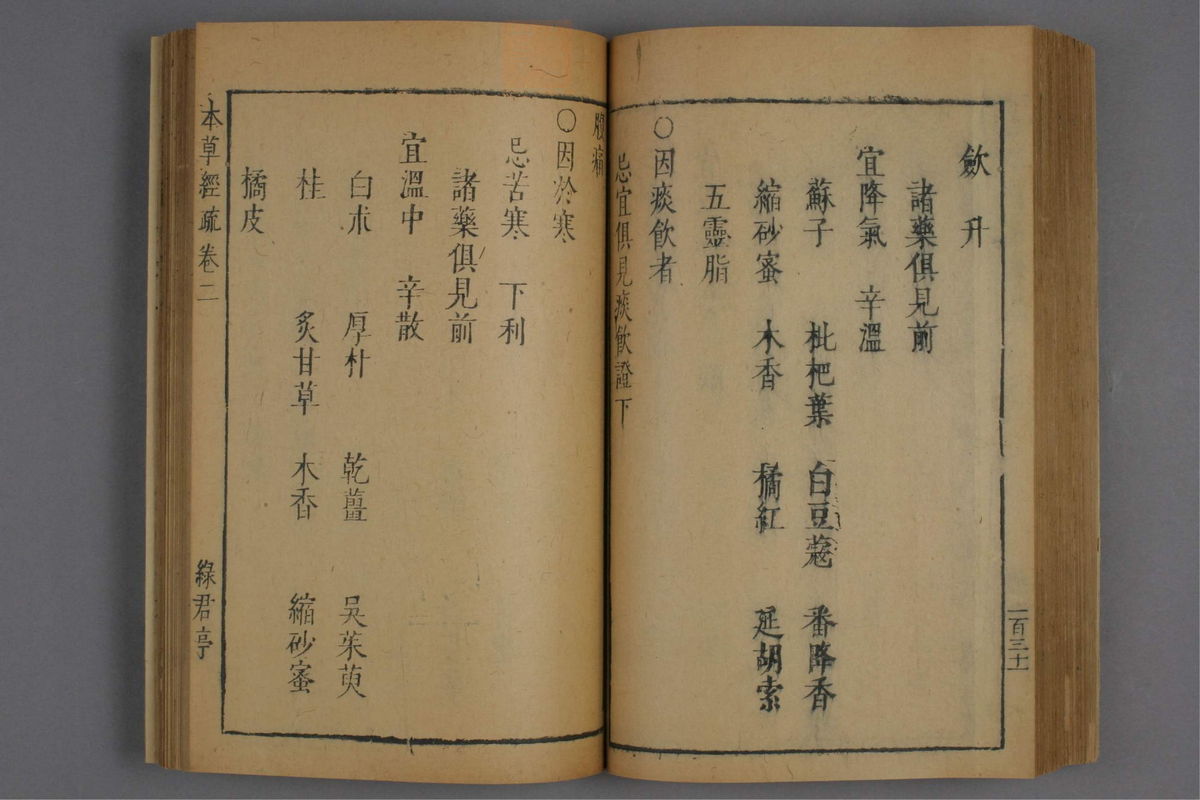 斂　升
諸藥俱見前
宜降氣　辛溫
蘇子　枇杷葉　白豆蔻　番降香
縮砂蜜　木香　橘紅　延胡索
五靈脂
〇因痰飲者
忌宜俱見痰飲證下
一百三十
腹痛
〇因於寒
忌苦寒　下利
諸藥俱見前
宜溫中　辛散
白朮　厚朴　乾薑　吳茱萸
桂　炙甘草　木香　縮砂蜜
橘皮
本草經疏卷二
綠君亭